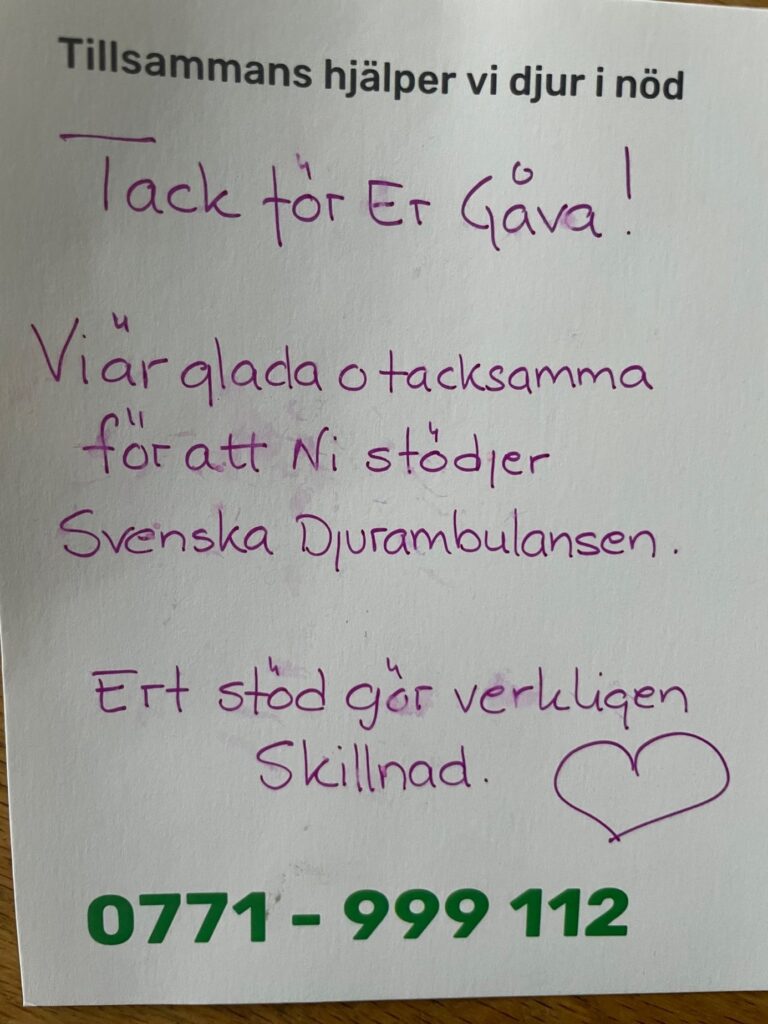 Tillsammans hjälper vi djur i nöd
Tack för Er Gåva!
Vi är glada o tacksamma
för att Ni stödjer
Svenska Djurambulansen.
Ert stöd gör verkligen
Skillnad.
0771 - 999 112